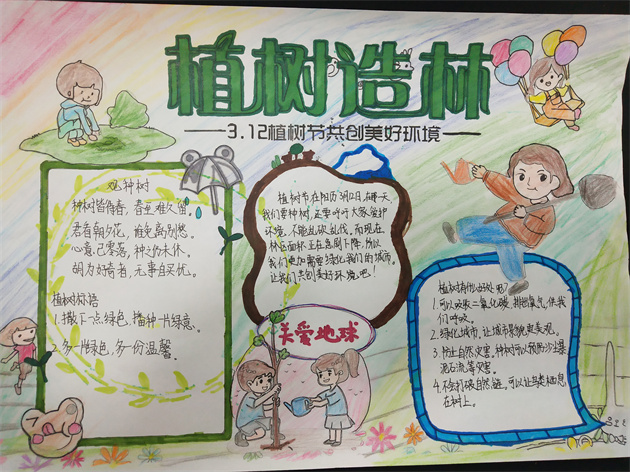 植树造林
3.12植树节共创美好环境
戏种树
种树皆待春,春至难久留。
君看朝夕花,谁免离别愁。
心意已零落,种之仍未休。
胡为好奇者,无事自买忧。
植树标语
1.撒下一点绿色,播种一片绿意。
2.多一片绿色,多一份温馨。
植树节在阳历3月12日,在那一天
我们要种树,还要呼吁大家爱护
环境,不能乱砍乱伐,而现在
林区面积正在急剧下降,所以
我们更加需要绿化我们的城市。
让我们共创美好环境吧!
关爱地球
植树有什么好处呢?
1.可以吸收二氧化碳,排出氧气,供我
们呼吸。
2.绿化城市,让城市景色更美观。
3.防止自然灾害,种树可以预防沙尘暴
泥石流等灾害。
4.不会打破自然链,可以让鸟类栖息
在树上。